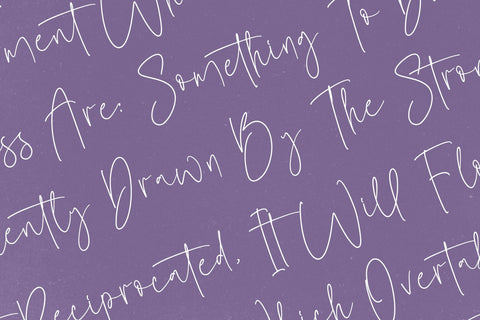 ment Wh
ss Are: Something To B
ently Drawn By The Stron
Reciprocated, It Will Flo
hich Overta